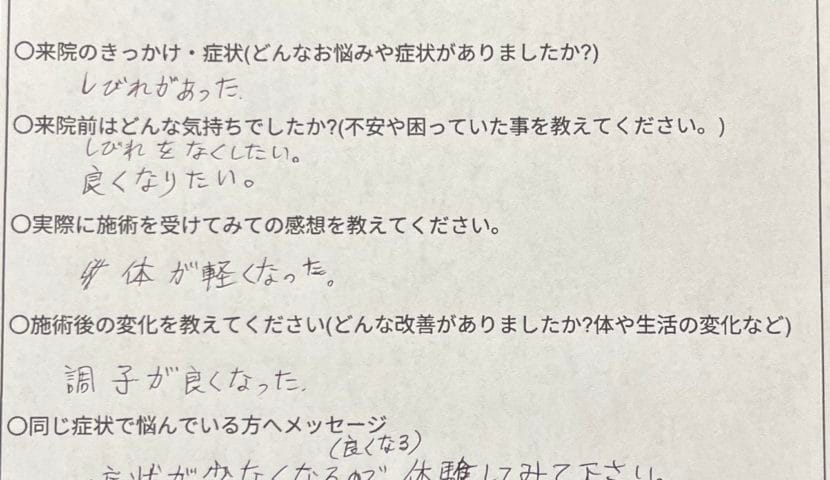 〇来院のきっかけ・症状(どんなお悩みや症状がありましたか?)
しびれがあった.
〇来院前はどんな気持ちでしたか?(不安や困っていた事を教えてください。)
しびれをなくしたい。
良くなりたい。
〇実際に施術を受けてみての感想を教えてください。
体が軽くなった。
〇施術後の変化を教えてください(どんな改善がありましたか?体や生活の変化など)
調子が良くなった.
〇同じ症状で悩んでいる方へメッセージ
(良くなる)
症状が少なくなるので体験してみて下さい。